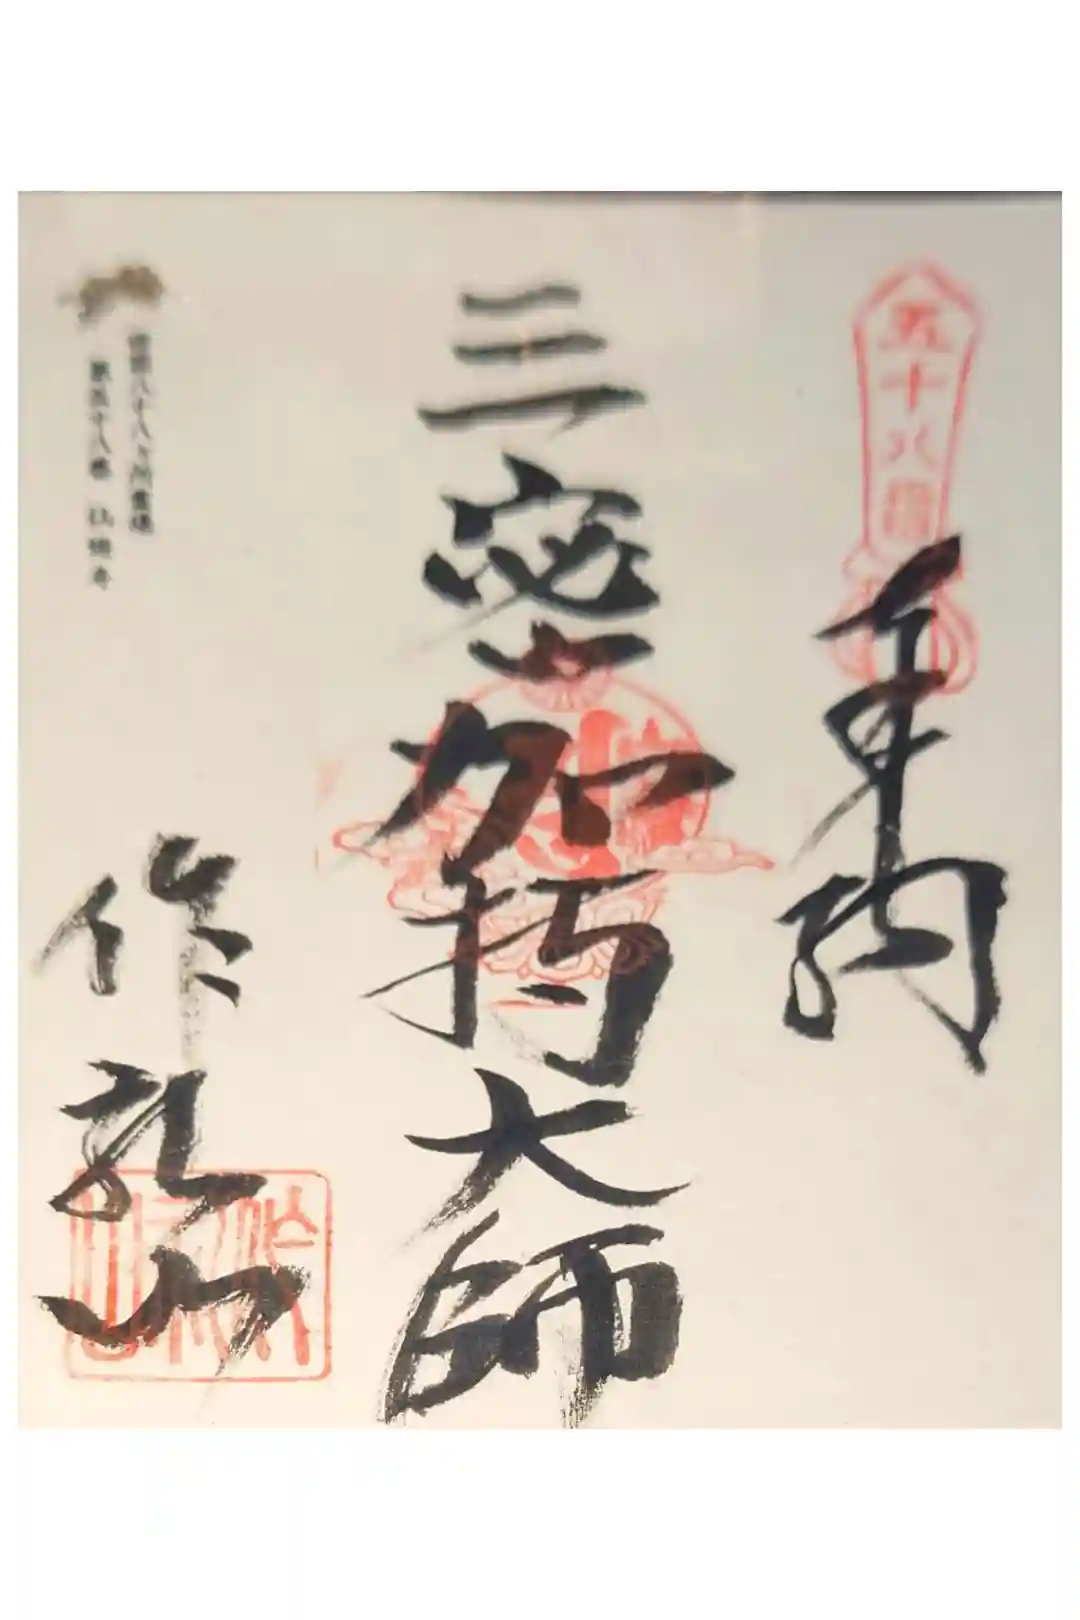 五十八番
奉納
三密加持大師
四国八十八ヶ所霊場
第五十八番 仙遊寺
作礼山